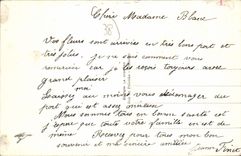 Chère Madame Blanc
Vos fleurs sont arrivées en très bon port et
très jolies, je ne sais comment vous
remercier car je les reçois toujours avec
grand plaisir
moi
Laissez au moins vous dédommager du
port qui est assez onéreux
Nous sommes tous en bonne santé est
j'espère que toute votre famille en est de
même Recevez pour tous mon bon
souvenir et ma sincère amitié